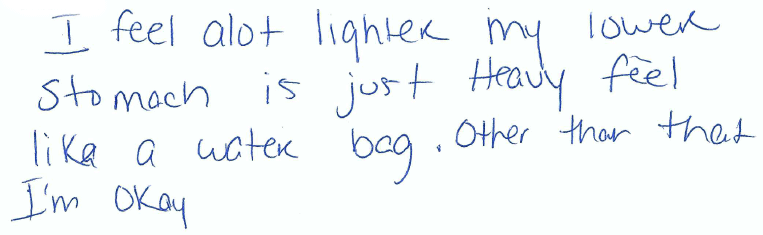 I feel alot lighter my lower
stomach is just Heavy feel
like a water bag. Other than that
I'm okay